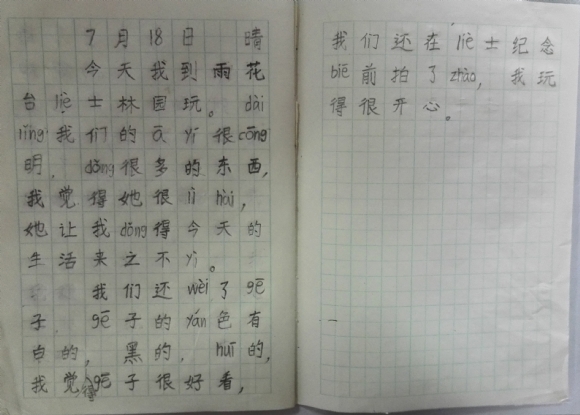 7月18日 晴
今天我到雨花
台liè士林园玩。dài
lǐng我们的ā yí很cōng
明,dǒng很多的东西,
我觉得她很lì hài,
她让我dǒng得今天的
生活来之不yì。
我们还wèi了gē
子,gē子的yán色有
白的,黑的,huī的,
我觉得gē子很好看,
我们还在liè士纪念
biē前拍了zhào,我玩
得很开心。